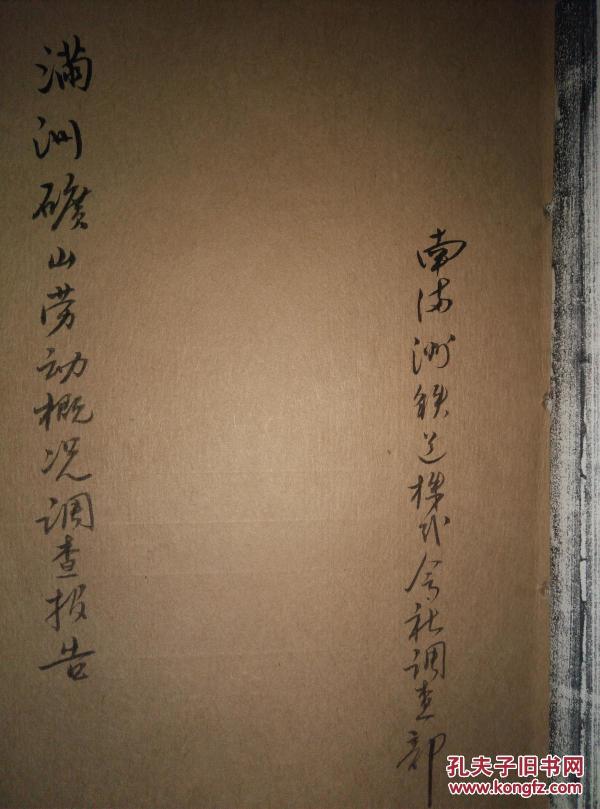 南满洲铁道株式会社调查部
滿洲礦山劳动概况调查报告
孔夫子旧书网
www.kongfz.com